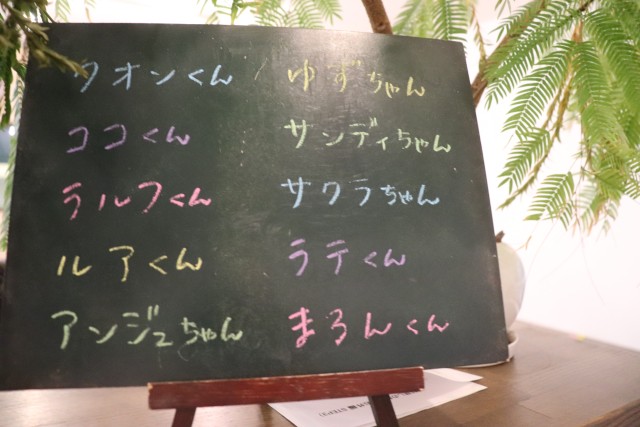 クオンくん ゆずちゃん
ココくん サンディちゃん
ラルフくん サクラちゃん
ルアくん ラテくん
アンジュちゃん まろんくん